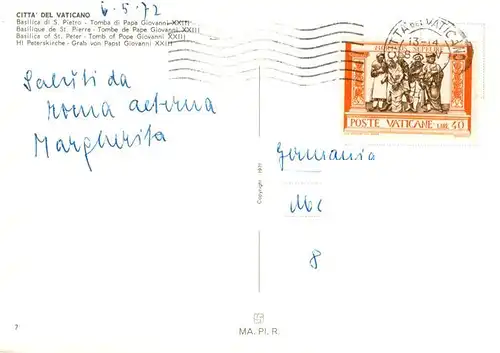 6.5.72
CITTA' DEL VATICANO
Basilica di S. Pietro - Tomba di Papa Giovanni XXIII
Basilique de St. Pierre - Tombe de Pape Giovanni XXIII
Basilica of St. Peter - Tomb of Pope Giovanni XXIII
Hl Peterskirche - Grab von Papst Giovanni XXIII
CITTA DEL VATICANO
POSTE VATICANE LIRE 40
Saluti da
roma aeterna
Margherita
Germania
8
7
MA. PI. R.